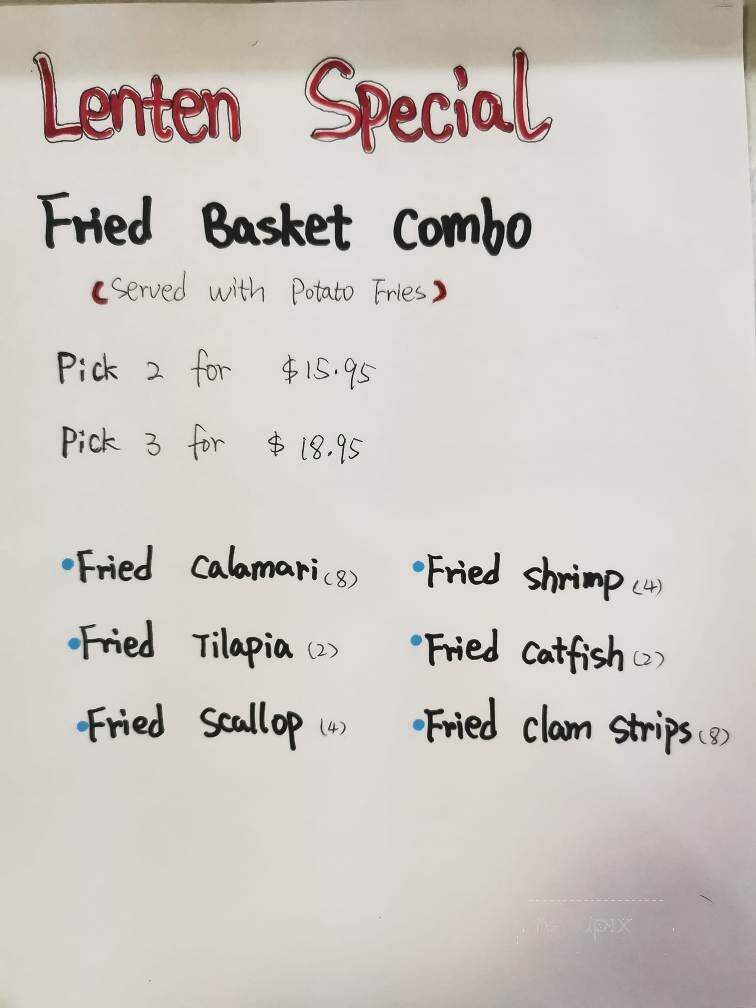 Lenten Special
Fried Basket Combo
(Served with Potato Fries)
Pick 2 for $15.95
Pick 3 for $18.95
•Fried Calamari (8) •Fried Shrimp (4)
•Fried Tilapia (2) •Fried Catfish (2)
•Fried Scallop (4) •Fried Clam Strips (8)